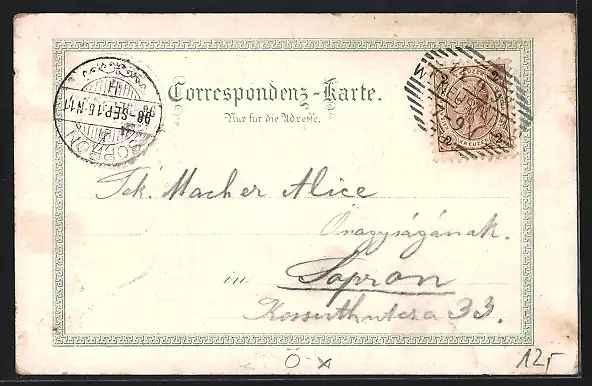 Correspondenz-Karte.
Nur für die Adresse.
SOPRON
98 -SEP.16.N.11
2 2
2 2
Tek. Macher Alice
Őnagyságának.
in Sopron
Kossuthutcza 33.
Ö-x
12,-